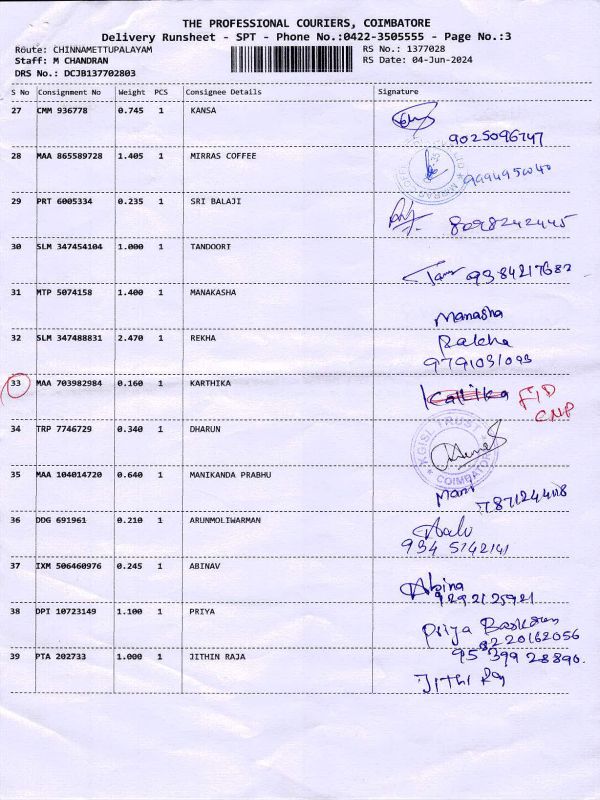 THE PROFESSIONAL COURIERS, COIMBATORE
Delivery Runsheet - SPT - Phone No.:0422-3505555 - Page No.:3
Route: CHINNAMETTUPALAYAM RS No.: 1377028
Staff: M CHANDRAN RS Date: 04-Jun-2024
DRS No.: DCJB137702803
S No Consignment No Weight PCS Consignee Details Signature
27 CMM 936778 0.745 1 KANSA
9025096747
28 MAA 865589728 1.405 1 MIRRAS COFFEE
29 PRT 6005334 0.235 1 SRI BALAJI
8098242445
30 SLM 347454104 1.000 1 TANDOORI
9384217682
31 MTP 5074158 1.400 1 MANAKASHA
Manasha
32 SLM 347488831 2.470 1 REKHA
Rakha
9791031093
33 MAA 703982984 0.160 1 KARTHIKA
CNP
34 TRP 7746729 0.340 1 DHARUN
KGISL TRUST COIMBATORE
35 MAA 104014720 0.640 1 MANIKANDA PRABHU
Mani
36 DDG 691961 0.210 1 ARUNMOLIWARMAN
934 5142141
37 IXM 506460976 0.245 1 ABINAV
Abina
38 DPI 10723149 1.100 1 PRIYA
Priya Baskaran
8220162056
39 PTA 202733 1.000 1 JITHIN RAJA
95 399 28890.
Jithi Raj